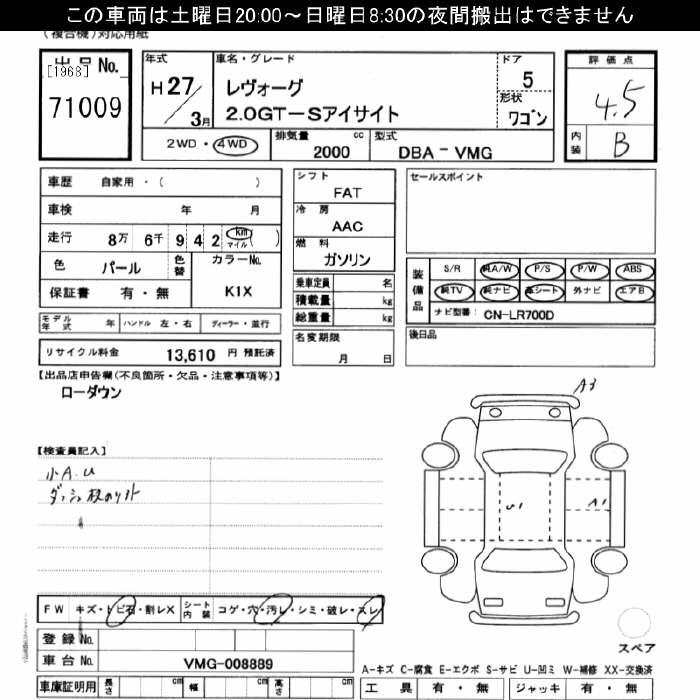 この車両は土曜日20:00～日曜日8:30の夜間搬出はできません
(複合機)対応用紙
出品No.
[1968]
71009
年式
H27/3月
車名・グレード
レヴォーグ
2.0GT-Sアイサイト
ドア
5
形状
ワゴン
2WD・4WD
排気量 cc
2000
型式
DBA-VMG
評価点
4.5
内装
B
車歴 自家用・( )
車検 年 月
走行 8万 6千 9 4 2 km マイル ( )
色 パール 色替
カラーNo.
K1X
保証書 有・無
モデル年式 年 ハンドル 左・右 ディーラー・並行
リサイクル料金 13,610 円 預託済
シフト
FAT
冷房
AAC
燃料
ガソリン
乗車定員 名
積載量 kg
総重量 kg
名変期限
月 日
セールスポイント
装備品
S/R 純A/W P/S P/W ABS
純TV 純ナビ 革シート 外ナビ エアB
ナビ型番: CN-LR700D
後日品
【出品店申告欄(不良箇所・欠品・注意事項等)】
ローダウン
【検査員記入】
小A.U
A3
U1
A1
FW キズ・トビ石・割レX
シート内装 コゲ・穴・汚レ・シミ・破レ・スレ
登録No.
車台No.
VMG-008889
車庫証明用 長さ cm 幅 cm 高さ cm
スペア
A-キズ C-腐食 E-エクボ S-サビ U-凹ミ W-補修 XX-交換済
工具 有・無 ジャッキ 有・無